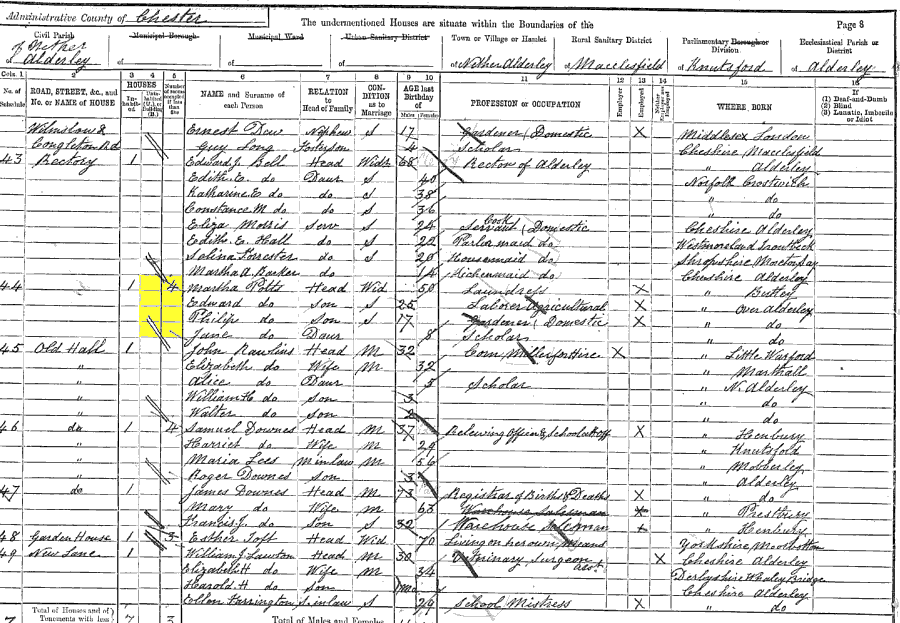 Administrative County of Chester
The undermentioned Houses are situate within the Boundaries of the
Page 8
Civil Parish
of Nether
Alderley
Municipal Borough
of
Municipal Ward
of
Urban Sanitary District
of
Town or Village or Hamlet
of Nither Alderley
Rural Sanitary District
of Macclesfield
Parliamentary Borough or Division
of Knutsford
Ecclesiastical Parish or District
of Alderley
Cols. 1 2 3 4 5 6 7 8 9 10 11 12 13 14 15 16
No. of Schedule
ROAD, STREET, &c., and No. or NAME of HOUSE
HOUSES
Inhabited
Uninhabited (U.), or Building (B.)
Number of rooms occupied if less than five
NAME and Surname of each Person
RELATION to Head of Family
CONDITION as to Marriage
AGE last Birthday of
Males Females
PROFESSION or OCCUPATION
Employer
Employed
Neither Employer nor Employed
WHERE BORN
If
(1) Deaf-and-Dumb
(2) Blind
(3) Lunatic, Imbecile or Idiot
Wilmslow & Ernest Daw Nephew S 17 Gardener (Domestic X Middlesex London
Congleton Rd Guy Long 4 Scholar Cheshire Macclesfield
43 Rectory 1 Edward J. Bell Head Widr 68 Rector of Alderley " Alderley
Edith E. do Daur S 40 Norfolk Crostwich
Katharine E. do do S 38 " do
Constance M. do do S 36 " do
Eliza Morris Serv S 24 Cook Servant (Domestic Cheshire Alderley
Edith E. Hall do S 22 Parlor maid do Westmoreland Troutbeck
Selina Forrester do S 20 Housemaid do Shropshire
Martha A. Barker do 14 Kitchenmaid do Cheshire Alderley
44 1 4 Martha Potts Head Wid 50 Laundress X " Butley
Edward do Son S 25 Laborer Agricultural X " over Alderley
Philip do Son S 17 Gardener (Domestic X " do
Jane do Daur 8 Scholar " do
45 Old Hall 1 John Rawlins Head M 32 Corn Miller for Hire X " Little Warford
" Elizabeth do Wife M 32 " Marthall
" Alice do Daur 5 Scholar " N. Alderley
" William H. do Son 3 " do
" Walter do Son 2 " do
46 do 1 4 Samuel Downes Head M 37 Relieving Officer & School att. Off X " Henbury
" Harriet do Wife M 29 " Knutsford
" Maria Lees M in law M 56 " Mobberley
" Roger Downes Son 3 " Alderley
47 do 1 James Downes Head M 73 Registrar of Births & Deaths X " do
" Mary do Wife M 63 Warehouse Salesman X " Prestbury
" Francis J. do Son S 32 Warehouse Salesman X " Henbury
48 Garden House 1 3 Esther Toft Head Wid 70 Living on her own Means Yorkshire
49 New Lane 1 William J. Lawton Head M 30 Vetirinary Surgeon asst. X Cheshire Alderley
Elizabeth H do Wife M 34 Derbyshire Whaley Bridge
Harold H do Son Cheshire Alderley
Ellen Farrington S. in law S 29 School Mistress X " do
Total of Houses and of Tenements with less
7 3
Total of Males and Females